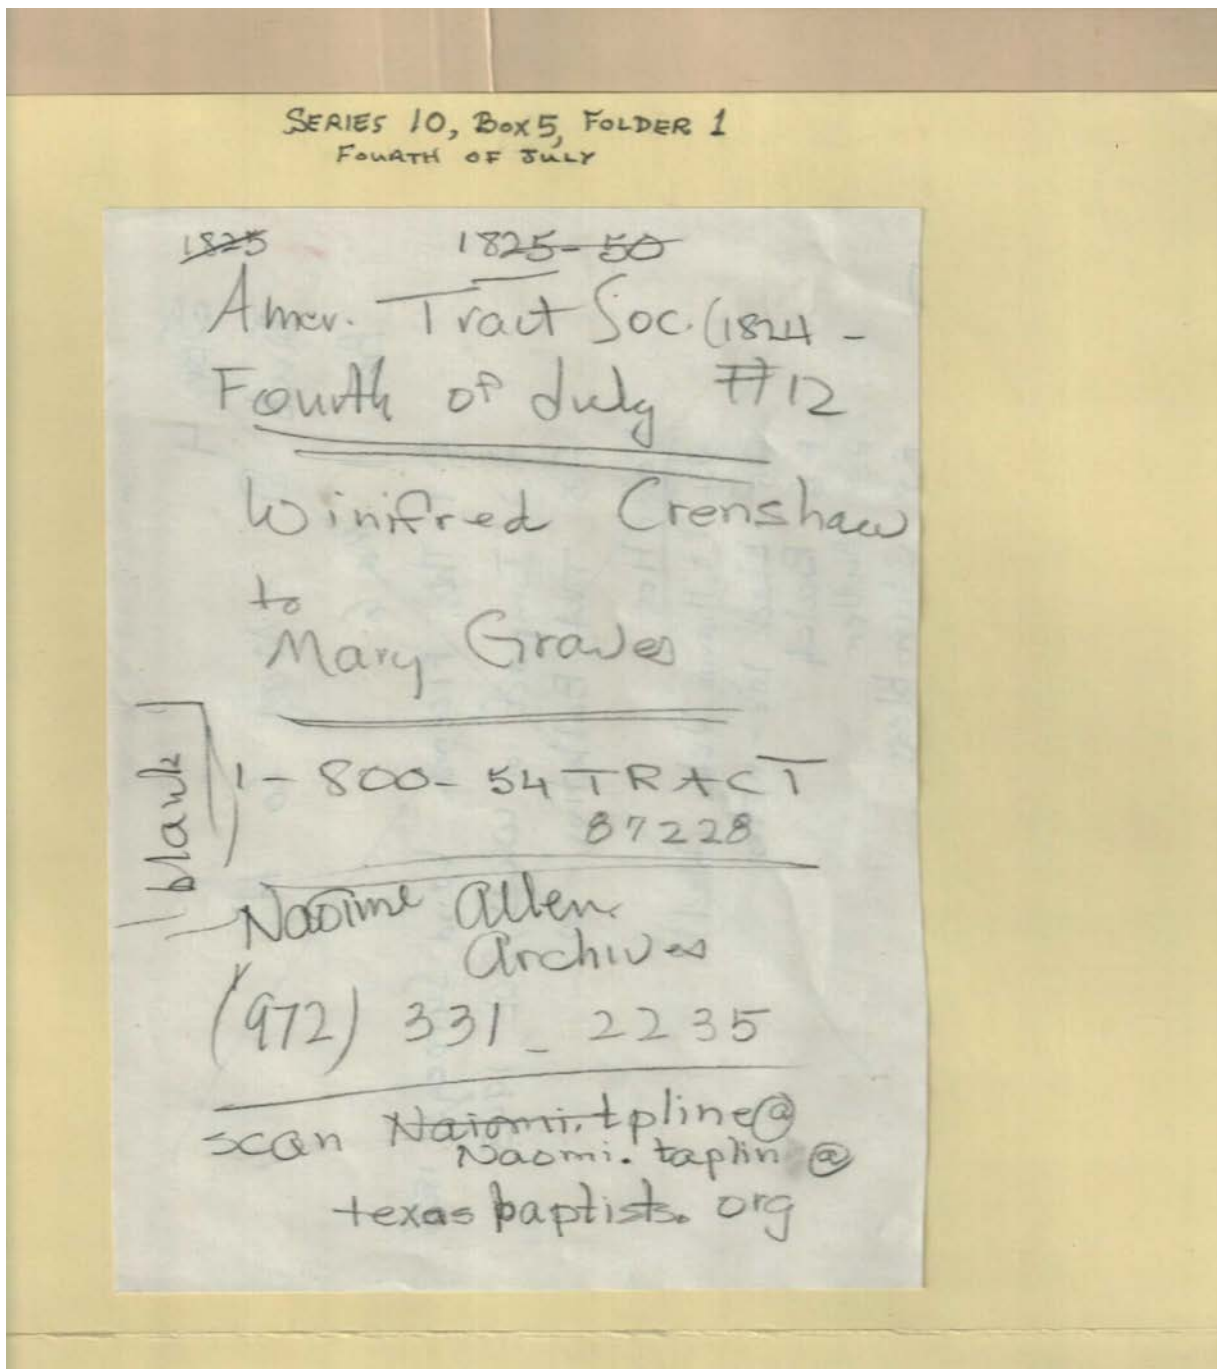 SERIES 10, BOX 5, FOLDER 1
FOURTH OF JULY
1825 1825-50
Amer. Tract Soc. (1824 -
Fourth of July #12
Winifred Crenshaw
to
Mary Graves
blank
1-800-54 TRACT
87228
Naoime Allen
Archives
(972) 331-2235
scan Naiomi.tpline@
Naomi.taplin@
texasbaptists.org